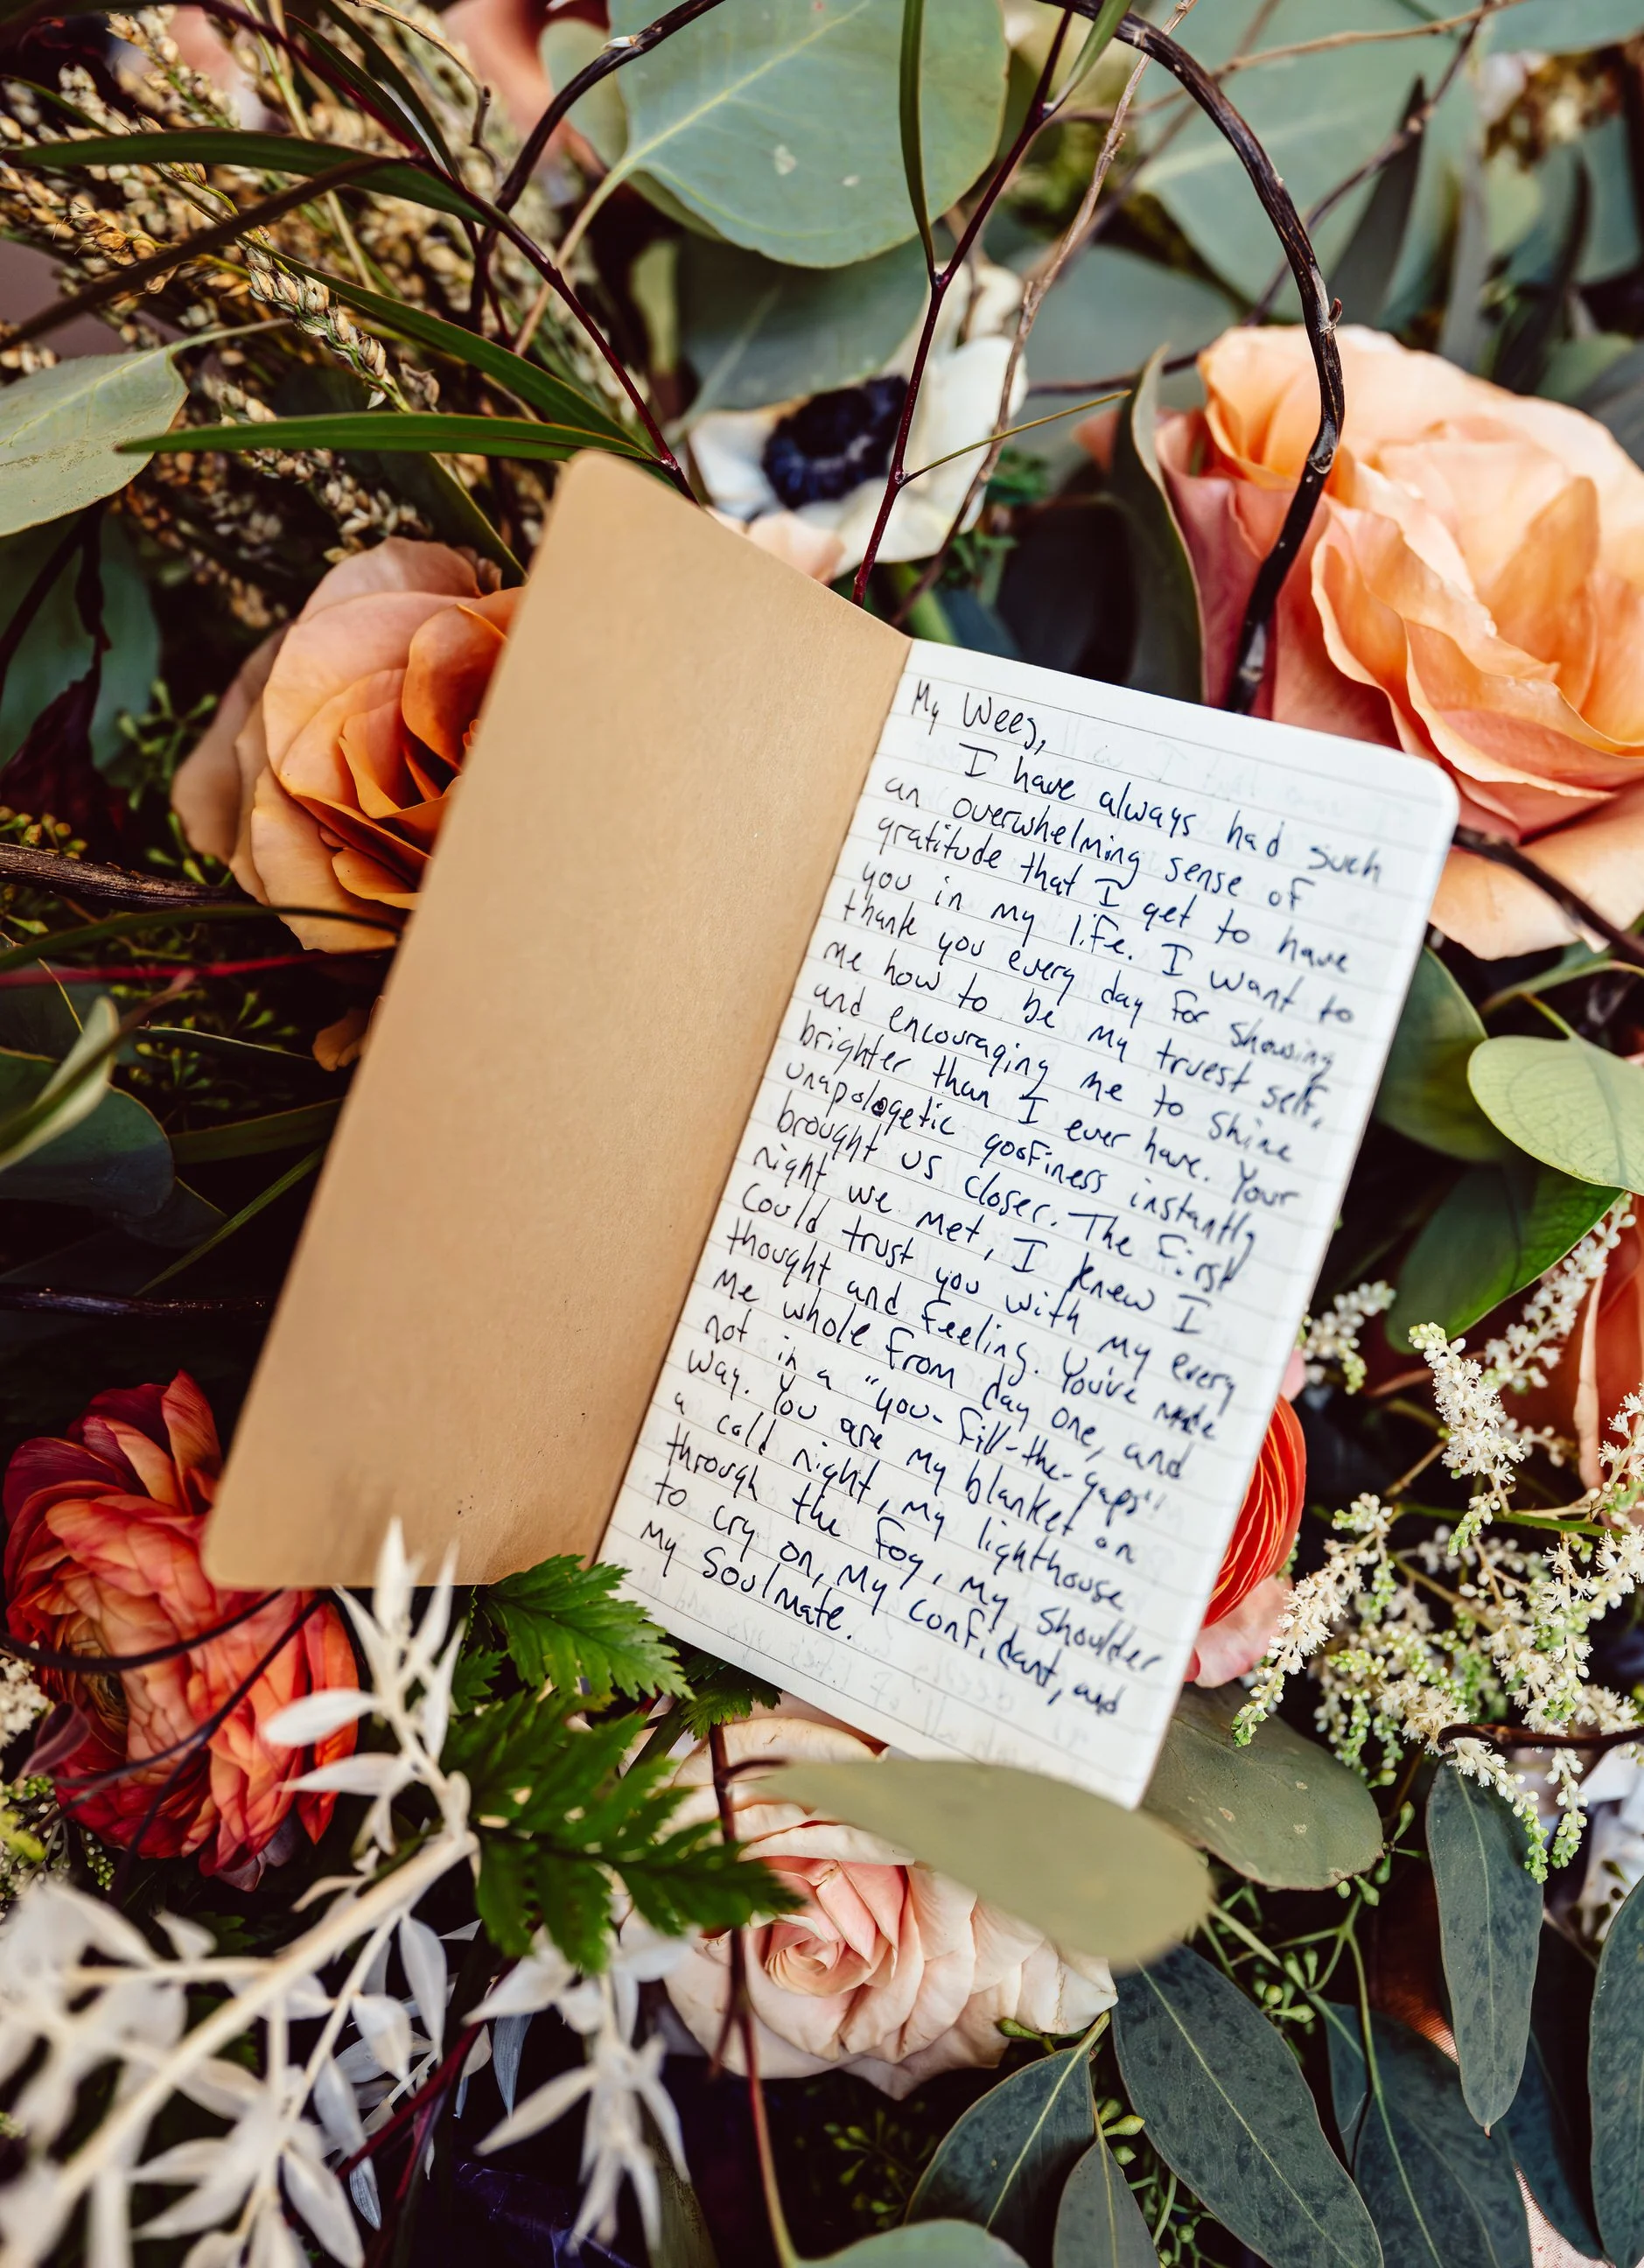 My Weez,
I have always had such
an overwhelming sense of
gratitude that I get to have
you in my life. I want to
thank you every day for showing
me how to be my truest self,
and encouraging me to shine
brighter than I ever have. Your
unapologetic goofiness instantly
brought us closer. The first
night we met, I knew I
could trust you with my every
thought and feeling. You've made
me whole from day one, and
not in a "you-fill-the-gaps"
way. You are my blanket on
a cold night, my lighthouse
through the fog, my shoulder
to cry on, my confidant, and
my soulmate.